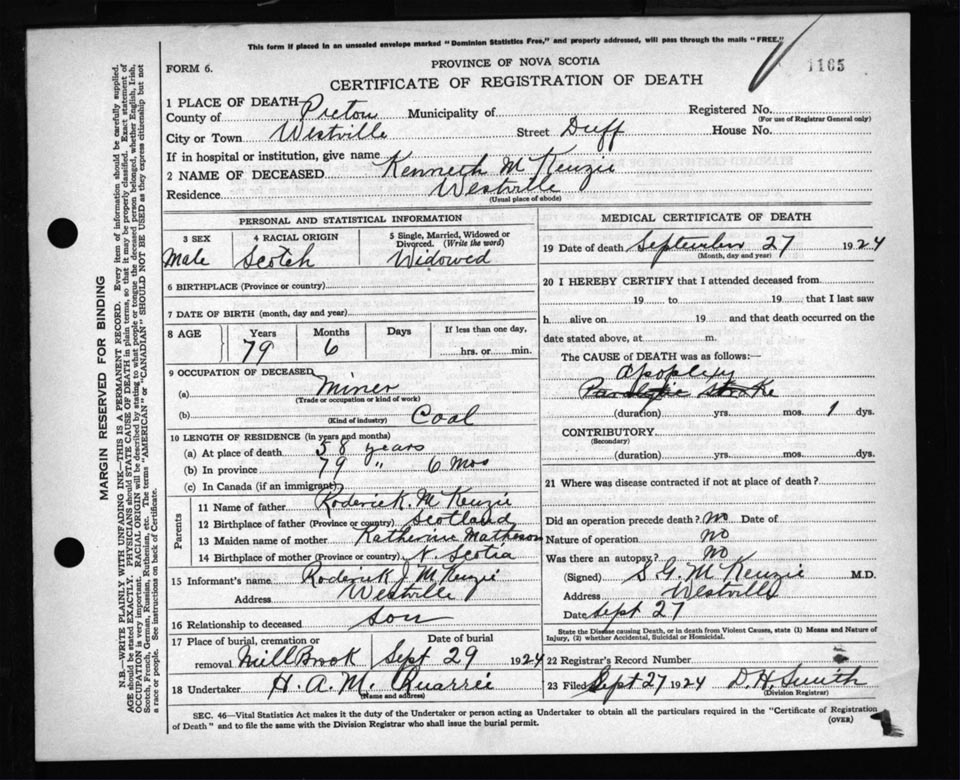 This form if placed in an unsealed envelope marked "Dominion Statistics Free," and properly addressed, will pass through the mails "FREE."
1165
PROVINCE OF NOVA SCOTIA
FORM 6.
CERTIFICATE OF REGISTRATION OF DEATH
1 PLACE OF DEATH
County of Pictou Municipality of Registered No.
(For use of Registrar General only)
City or Town Westville Street Duff House No.
If in hospital or institution, give name
2 NAME OF DECEASED Kenneth McKenzie
Residence Westville
(Usual place of abode)
PERSONAL AND STATISTICAL INFORMATION
3 SEX 4 RACIAL ORIGIN 5 Single, Married, Widowed or Divorced. (Write the word)
Male Scotch Widowed
6 BIRTHPLACE (Province or country)
7 DATE OF BIRTH (month, day and year)
8 AGE Years Months Days If less than one day,
79 6 hrs. or min.
9 OCCUPATION OF DECEASED
(a) Miner
(Trade or occupation or kind of work)
(b) Coal
(Kind of industry)
10 LENGTH OF RESIDENCE (in years and months)
(a) At place of death 58 years
(b) In province 79 " 6 mos
(c) In Canada (if an immigrant)
Parents
11 Name of father Roderick McKenzie
12 Birthplace of father (Province or country) Scotland
13 Maiden name of mother Katherine Matheson
14 Birthplace of mother (Province or country) N. Scotia
15 Informant's name Roderick J. McKenzie
Address Westville
16 Relationship to deceased son
17 Place of burial, cremation or removal Date of burial
MillBrook Sept 29 1924
18 Undertaker H. A. McQuarrie
(Name and address)
MEDICAL CERTIFICATE OF DEATH
19 Date of death September 27 1924
(Month, day and year)
20 I HEREBY CERTIFY that I attended deceased from
19 to 19 that I last saw
h alive on 19 and that death occurred on
date stated above, at m.
The CAUSE of DEATH was as follows:
apoplexy
Paralytic Stroke
(duration) yrs. mos. 1 dys.
CONTRIBUTORY
(Secondary)
(duration) yrs. mos. dys.
21 Where was disease contracted if not at place of death?
Did an operation precede death? no Date of
Nature of operation no
Was there an autopsy? no
(Signed) D G. McKenzie M.D.
Address Westville
Date Sept 27
State the Disease causing Death, or in death from Violent Causes, state (1) Means and Nature of
Injury, (2) whether Accidental, Suicidal or Homicidal.
22 Registrar's Record Number
23 Filed Sept 27 1924 D. H. Smith
(Division Registrar)
SEC. 46—Vital Statistics Act makes it the duty of the Undertaker or person acting as Undertaker to obtain all the particulars required in the "Certificate of Registration
of Death" and to file the same with the Division Registrar who shall issue the burial permit.
(OVER)
MARGIN RESERVED FOR BINDING
N.B.—WRITE PLAINLY WITH UNFADING INK—THIS IS A PERMANENT RECORD. Every item of information should be carefully supplied.
AGE should be stated EXACTLY. PHYSICIANS should STATE CAUSE OF DEATH in plain terms, so that it may be properly classified. Exact statement of
OCCUPATION is very important. RACIAL ORIGIN will be described by stating to what people or tongue the deceased person belonged, whether English, Irish,
Scotch, French, German, Russian, Ruthenian, etc. The terms "AMERICAN" or "CANADIAN" SHOULD NOT BE USED as they express citizenship but not
a race or people. See instructions on back of Certificate.